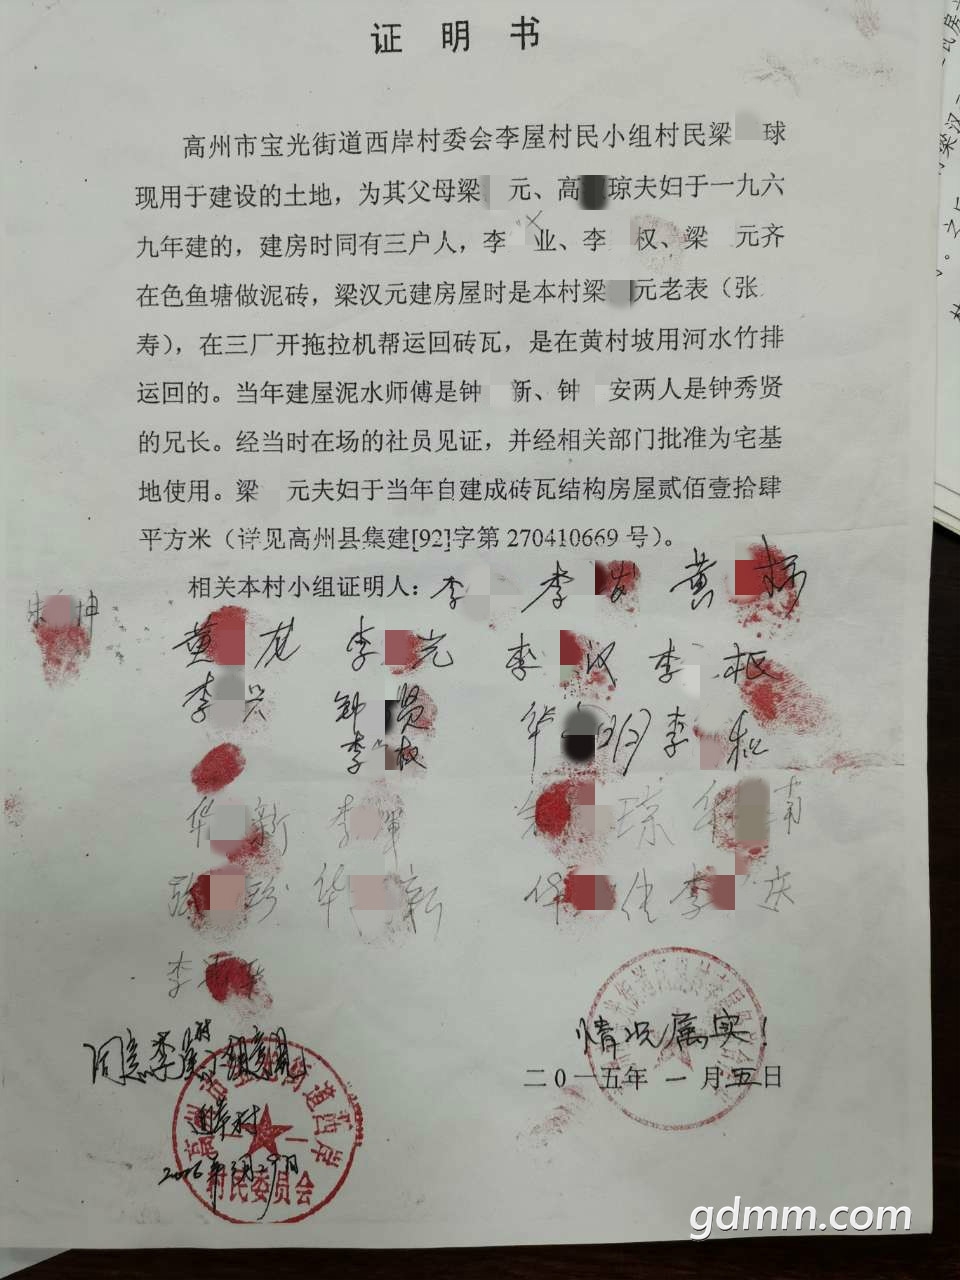 证 明 书
高州市宝光街道西岸村委会李屋村民小组村民梁 球
现用于建设的土地，为其父母梁 元、高 琼夫妇于一九六
九年建的，建房时同有三户人，李 业、李 权、梁 元齐
在色鱼塘做泥砖，梁汉元建房屋时是本村梁 元老表（张
寿），在三厂开拖拉机帮运回砖瓦，是在黄村坡用河水竹排
运回的。当年建屋泥水师傅是钟 新、钟 安两人是钟秀贤
的兄长。经当时在场的社员见证，并经相关部门批准为宅基
地使用。梁 元夫妇于当年自建成砖瓦结构房屋贰佰壹拾肆
平方米（详见高州县集建[92]字第 270410669 号）。
相关本村小组证明人：李 李 黄
朱 坤
黄 龙 李 光 李 汉 李 权
李 兴 钟 贤 华 明 李
李 权
华 新 李 辉 琼 华 南
张 珍 华 新 华 佳 李 庆
李
情况属实！
同意李屋村小组意见
二0一五年 一 月 五 日
村民委员会
gdmm.com